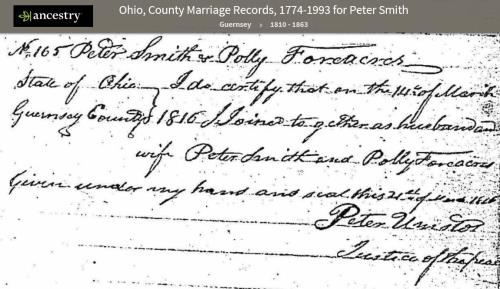 ancestry
Ohio, County Marriage Records, 1774-1993 for Peter Smith
Guernsey > 1810 - 1863
No. 165 Peter Smith & Polly Foreacres
State of Ohio } I do certify that on the 14th of March
Guernsey County } 1816 I Joined to gether as husband and
wife Peter Smith and Polly Foreacres
Given under my hand and seal this 21st of 1816
Peter
Justice of the peace